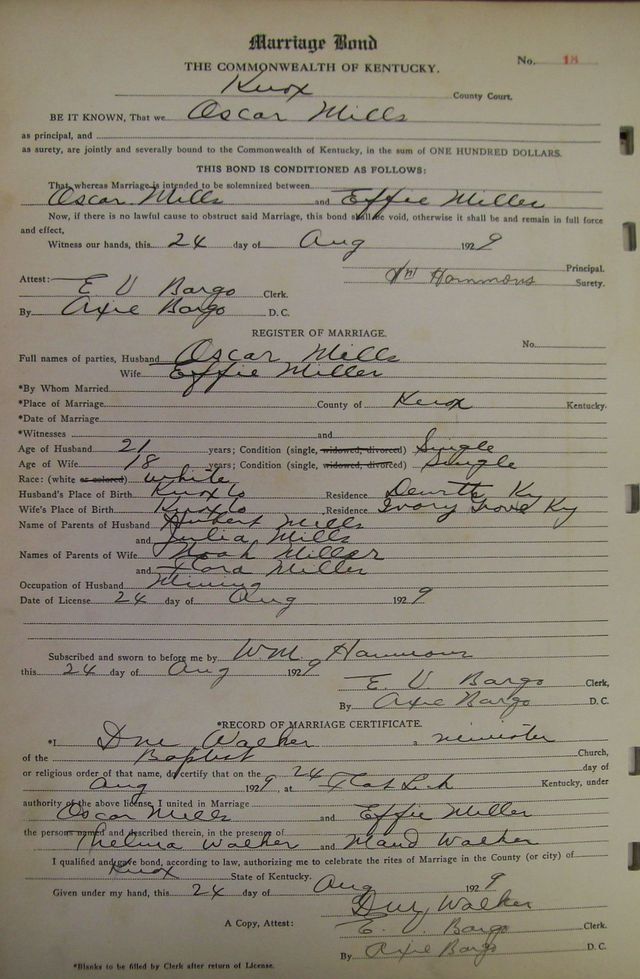 Marriage Bond
THE COMMONWEALTH OF KENTUCKY.
No. 18
Knox County Court.
BE IT KNOWN, That we Oscar Mills
as principal, and
as surety, are jointly and severally bound to the Commonwealth of Kentucky, in the sum of ONE HUNDRED DOLLARS.
THIS BOND IS CONDITIONED AS FOLLOWS:
That, whereas Marriage is intended to be solemnized between
Oscar Mills and Effie Miller
Now, if there is no lawful cause to obstruct said Marriage, this bond shall be void, otherwise it shall be and remain in full force
and effect,
Witness our hands, this 24 day of Aug 1929
Principal.
Attest: Wm Hammons Surety.
E U Bargo Clerk.
By Axie Bargo D. C.
REGISTER OF MARRIAGE.
No.
Full names of parties, Husband Oscar Mills
Wife Effie Miller
*By Whom Married
*Place of Marriage County of Knox Kentucky.
*Date of Marriage
*Witnesses and
Age of Husband 21 years; Condition (single, widowed, divorced) Single
Age of Wife 18 years; Condition (single, widowed, divorced) Single
Race: (white or colored) white
Husband's Place of Birth Knox Co Residence Dewitt Ky
Wife's Place of Birth Knox Co, Residence Ivory Grove Ky
Name of Parents of Husband Hubert Mills
and Julia Mills
Names of Parents of Wife Noah Miller
and Flora Miller
Occupation of Husband Mining
Date of License 24 day of Aug 1929
Subscribed and sworn to before me by WM. Hammons
this 24 day of Aug 1929
E. U Bargo Clerk,
By Axie Bargo D. C.
*RECORD OF MARRIAGE CERTIFICATE.
*I Walker a minister
of the Baptist Church,
or religious order of that name, do certify that on the 24 day of
Aug 1929, at Flat Lick Kentucky, under
authority of the above license, I united in Marriage
Oscar Mills and Effie Miller
the persons named and described therein, in the presence of
Thelma Walker and Maud Walker
I qualified and gave bond, according to law, authorizing me to celebrate the rites of Marriage in the County (or city) of
Knox State of Kentucky.
Given under my hand, this 24 day of Aug 1929
Walker
A Copy, Attest: E. U. Bargo Clerk.
By Axie Bargo D. C.
*Blanks to be filled by Clerk after return of License.